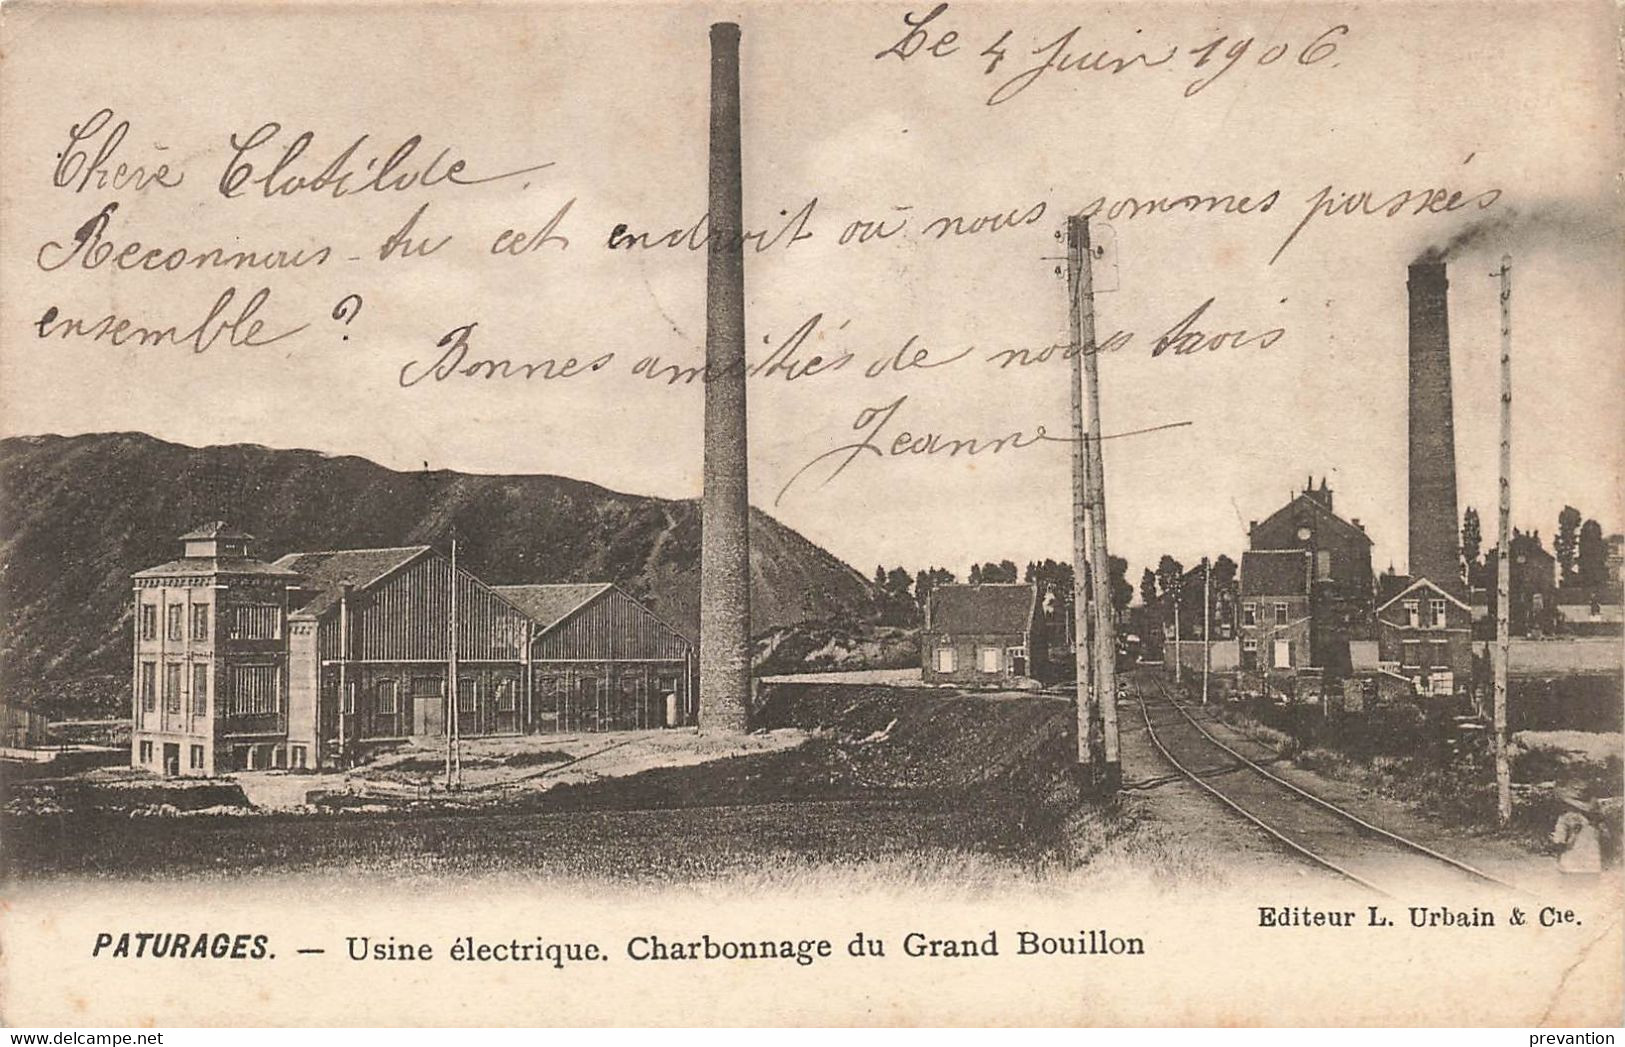 Le 4 Juin 1906.
Chère Clotilde.
Reconnais-tu cet endroit où nous sommes passées
ensemble ?
Bonnes amitiés de nous trois
Jeanne
Editeur L. Urbain & Cie.
PATURAGES. — Usine électrique. Charbonnage du Grand Bouillon
delcampe.net
prevantion